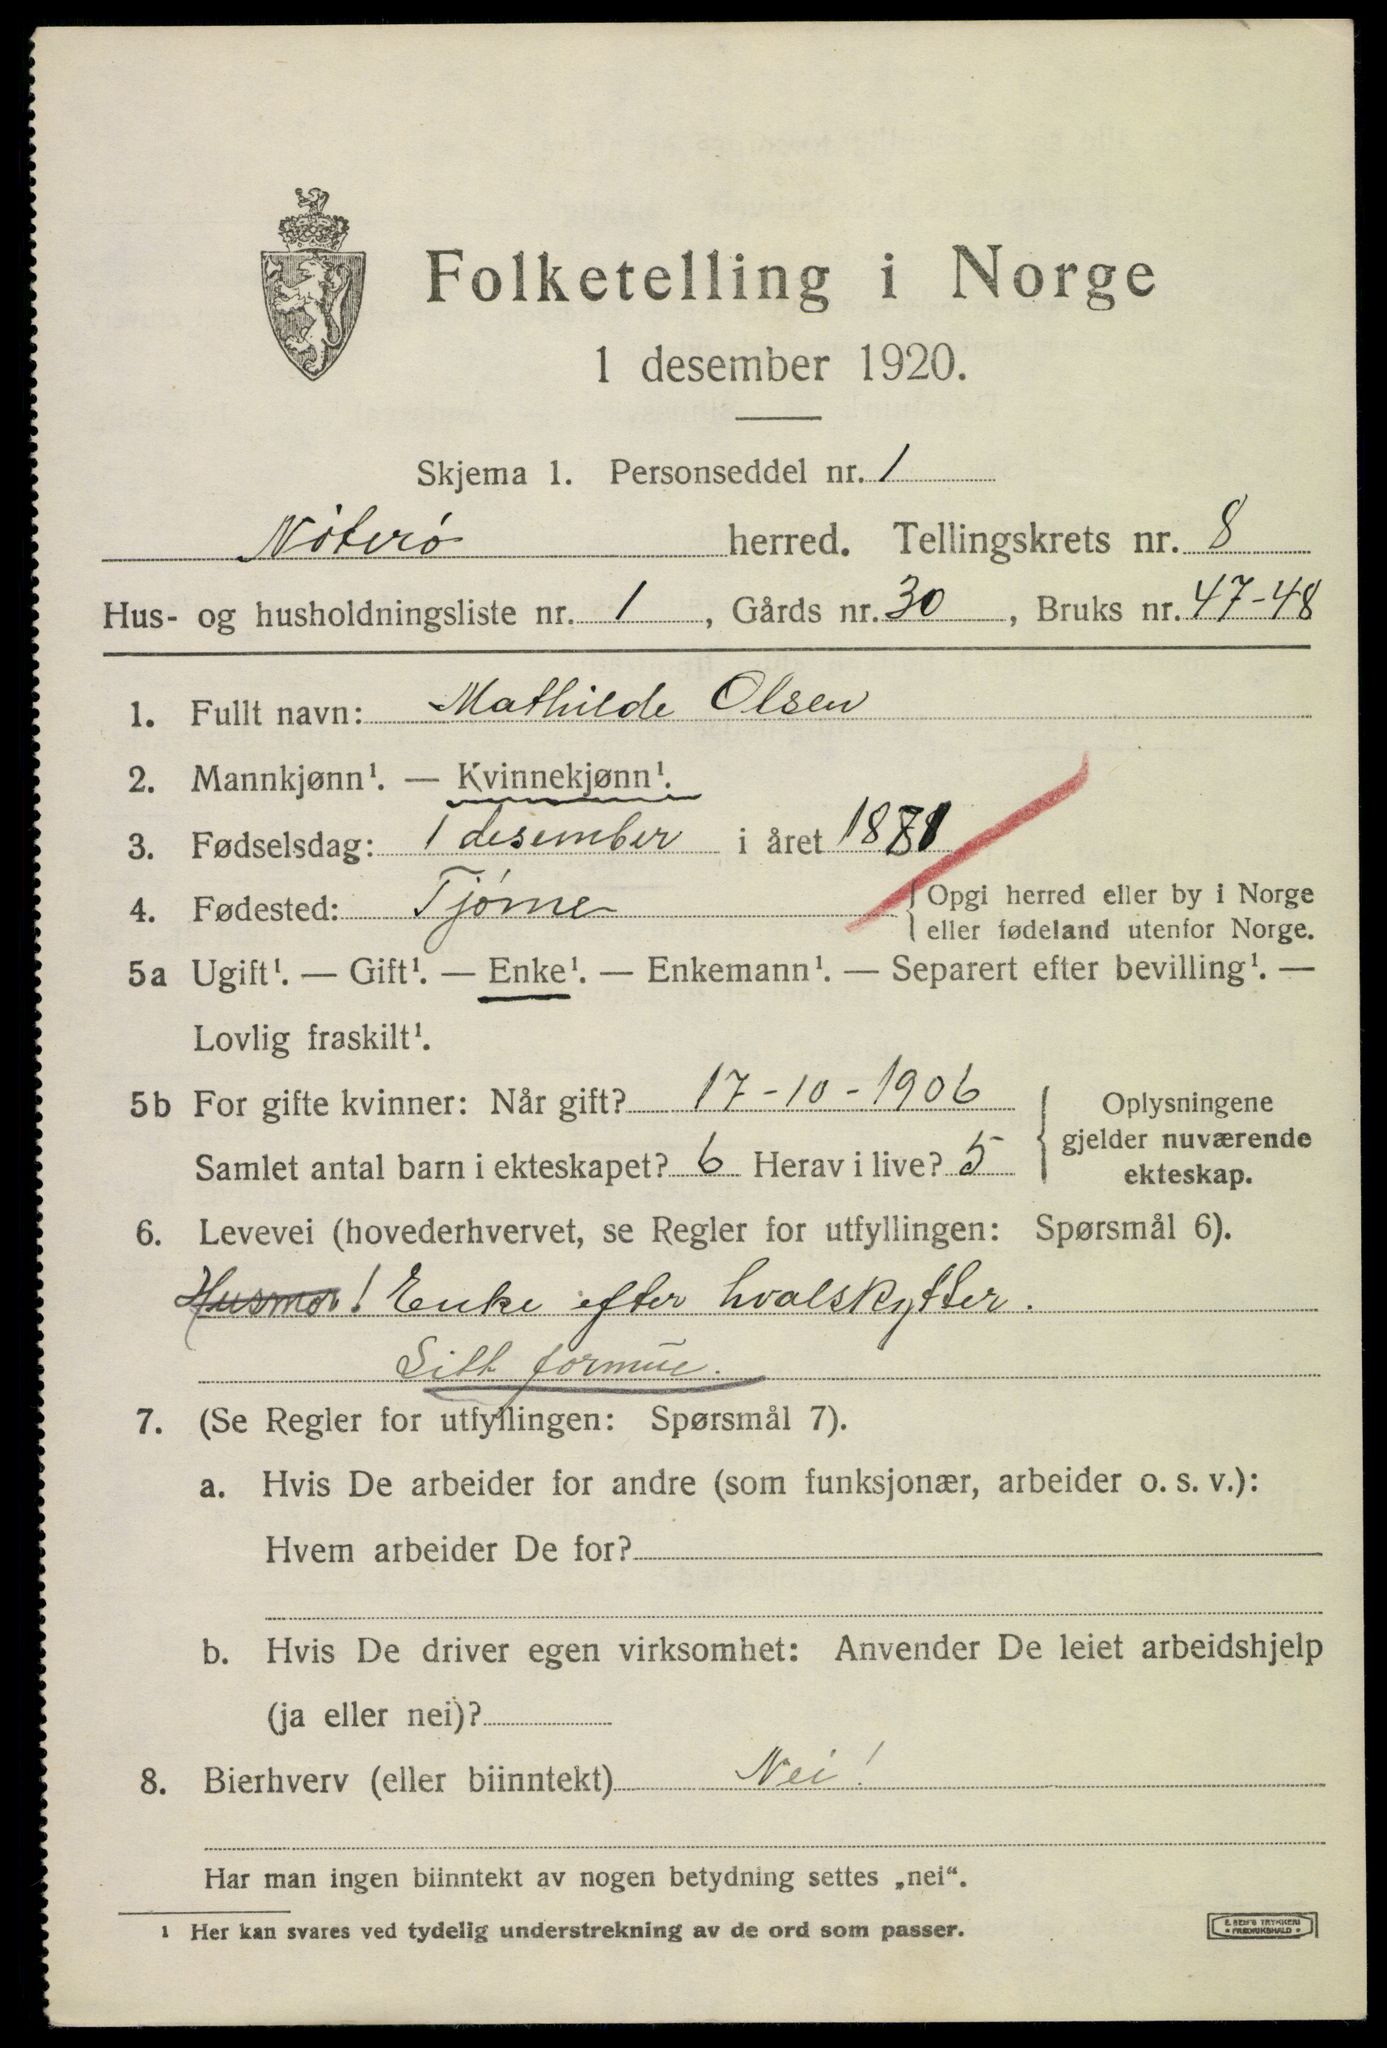 Folketelling i Norge
1 desember 1920.
Skjema 1. Personseddel nr. 1
Nøterø herred. Tellingskrets nr. 8
Hus- og husholdningsliste nr. 1, Gårds nr. 30, Bruks nr. 47-48
1. Fullt navn: Mathilde Olsen
2. Mannkjønn¹. — Kvinnekjønn¹.
3. Fødselsdag: 1 desember i året 1881
4. Fødested: Tjøme { Opgi herred eller by i Norge
eller fødeland utenfor Norge.
5a Ugift¹. — Gift¹. — Enke¹. — Enkemann¹. — Separert efter bevilling¹. —
Lovlig fraskilt¹.
5b For gifte kvinner: Når gift? 17-10-1906
Samlet antal barn i ekteskapet? 6 Herav i live? 5
{ Oplysningene
gjelder nuværende
ekteskap.
6. Levevei (hovederhvervet, se Regler for utfyllingen: Spørsmål 6).
Husmor! Enke efter hvalskytter.
Litt formue.
7. (Se Regler for utfyllingen: Spørsmål 7).
a. Hvis De arbeider for andre (som funksjonær, arbeider o. s. v.):
Hvem arbeider De for?
b. Hvis De driver egen virksomhet: Anvender De leiet arbeidshjelp
(ja eller nei)?
8. Bierhverv (eller biinntekt) Nei!
Har man ingen biinntekt av nogen betydning settes „nei“.
¹ Her kan svares ved tydelig understrekning av de ord som passer.
E. SEM'S TRYKKERI
FREDRIKSHALD